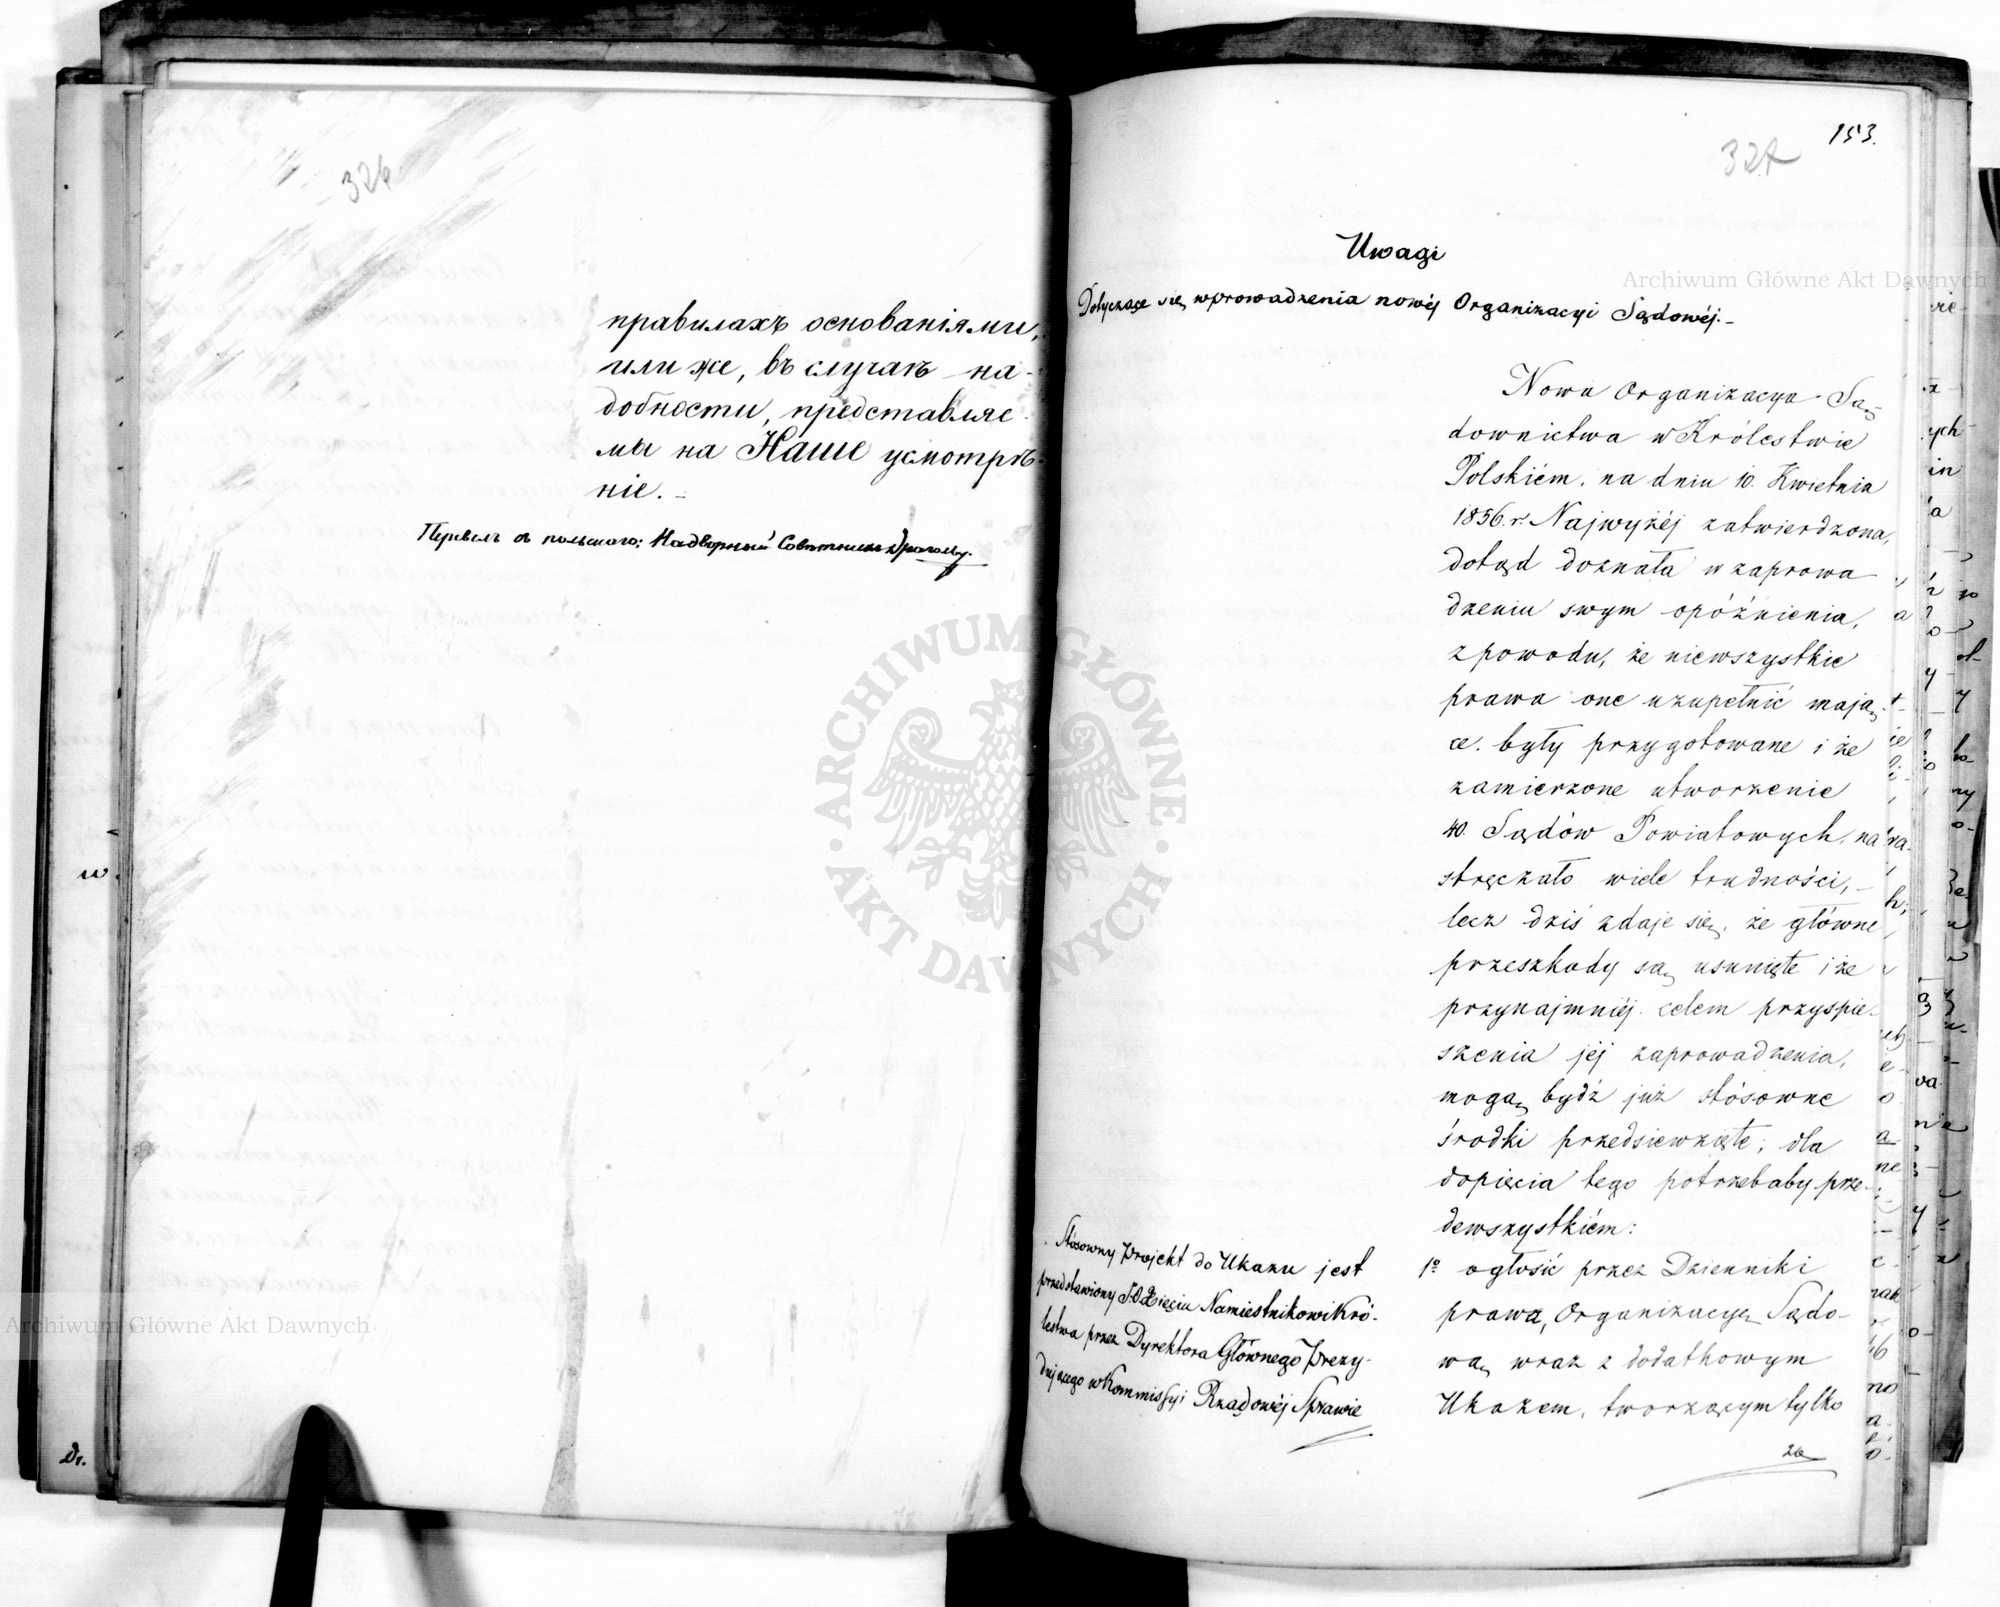 326
правилахъ основаніями,
или же, въ случаѣ на-
добности, представляе-
мы на Наше усмотрѣ-
ніе. –
Перевелъ съ польскаго: Надворный Совѣтникъ
153.
327
Uwagi
Dotyczące się wprowadzenia nowéj Organizacyi Sądowéj. –
Nowa Organizacya Są-
downictwa w Królestwie
Polskiém, na dniu 10. Kwietnia
1856. r. Najwyżéj zatwierdzona,
dotąd doznała w zaprowa
dzeniu swym opóźnienia,
z powodu, że niewszystkie
prawa one uzupełnić mają-
ce. były przygotowane i że
zamierzone utworzenie
40. Sądów Powiatowych, na
stręczało wiele trudności, –
lecz dziś zdaje się, że główne
przeszkody są usunięte i że
przynajmniéj celem przyspie-
szenia jéj zaprowadzenia,
mogą bydź już stósowne
środki przedsiewzięte; dla
dopięcia tego potrzebaby prze-
dewszystkiém:
1º ogłosić przez Dzienniki
prawa, Organizacyę Sądo-
wą wraz z dodatkowym
Ukazem, tworzącym tylko
26
Stósowny Projekt do Ukazu jest
przedstawiony J.O. Xięciu Namiestnikowi Kró-
lestwa przez Dyrektora Głównego Prezy-
dującego w Kommissyi Rządowéj Sprawie
Archiwum Główne Akt Dawnych
Archiwum Główne Akt Dawnych
ARCHIWUM GŁÓWNE
AKT DAWNYCH